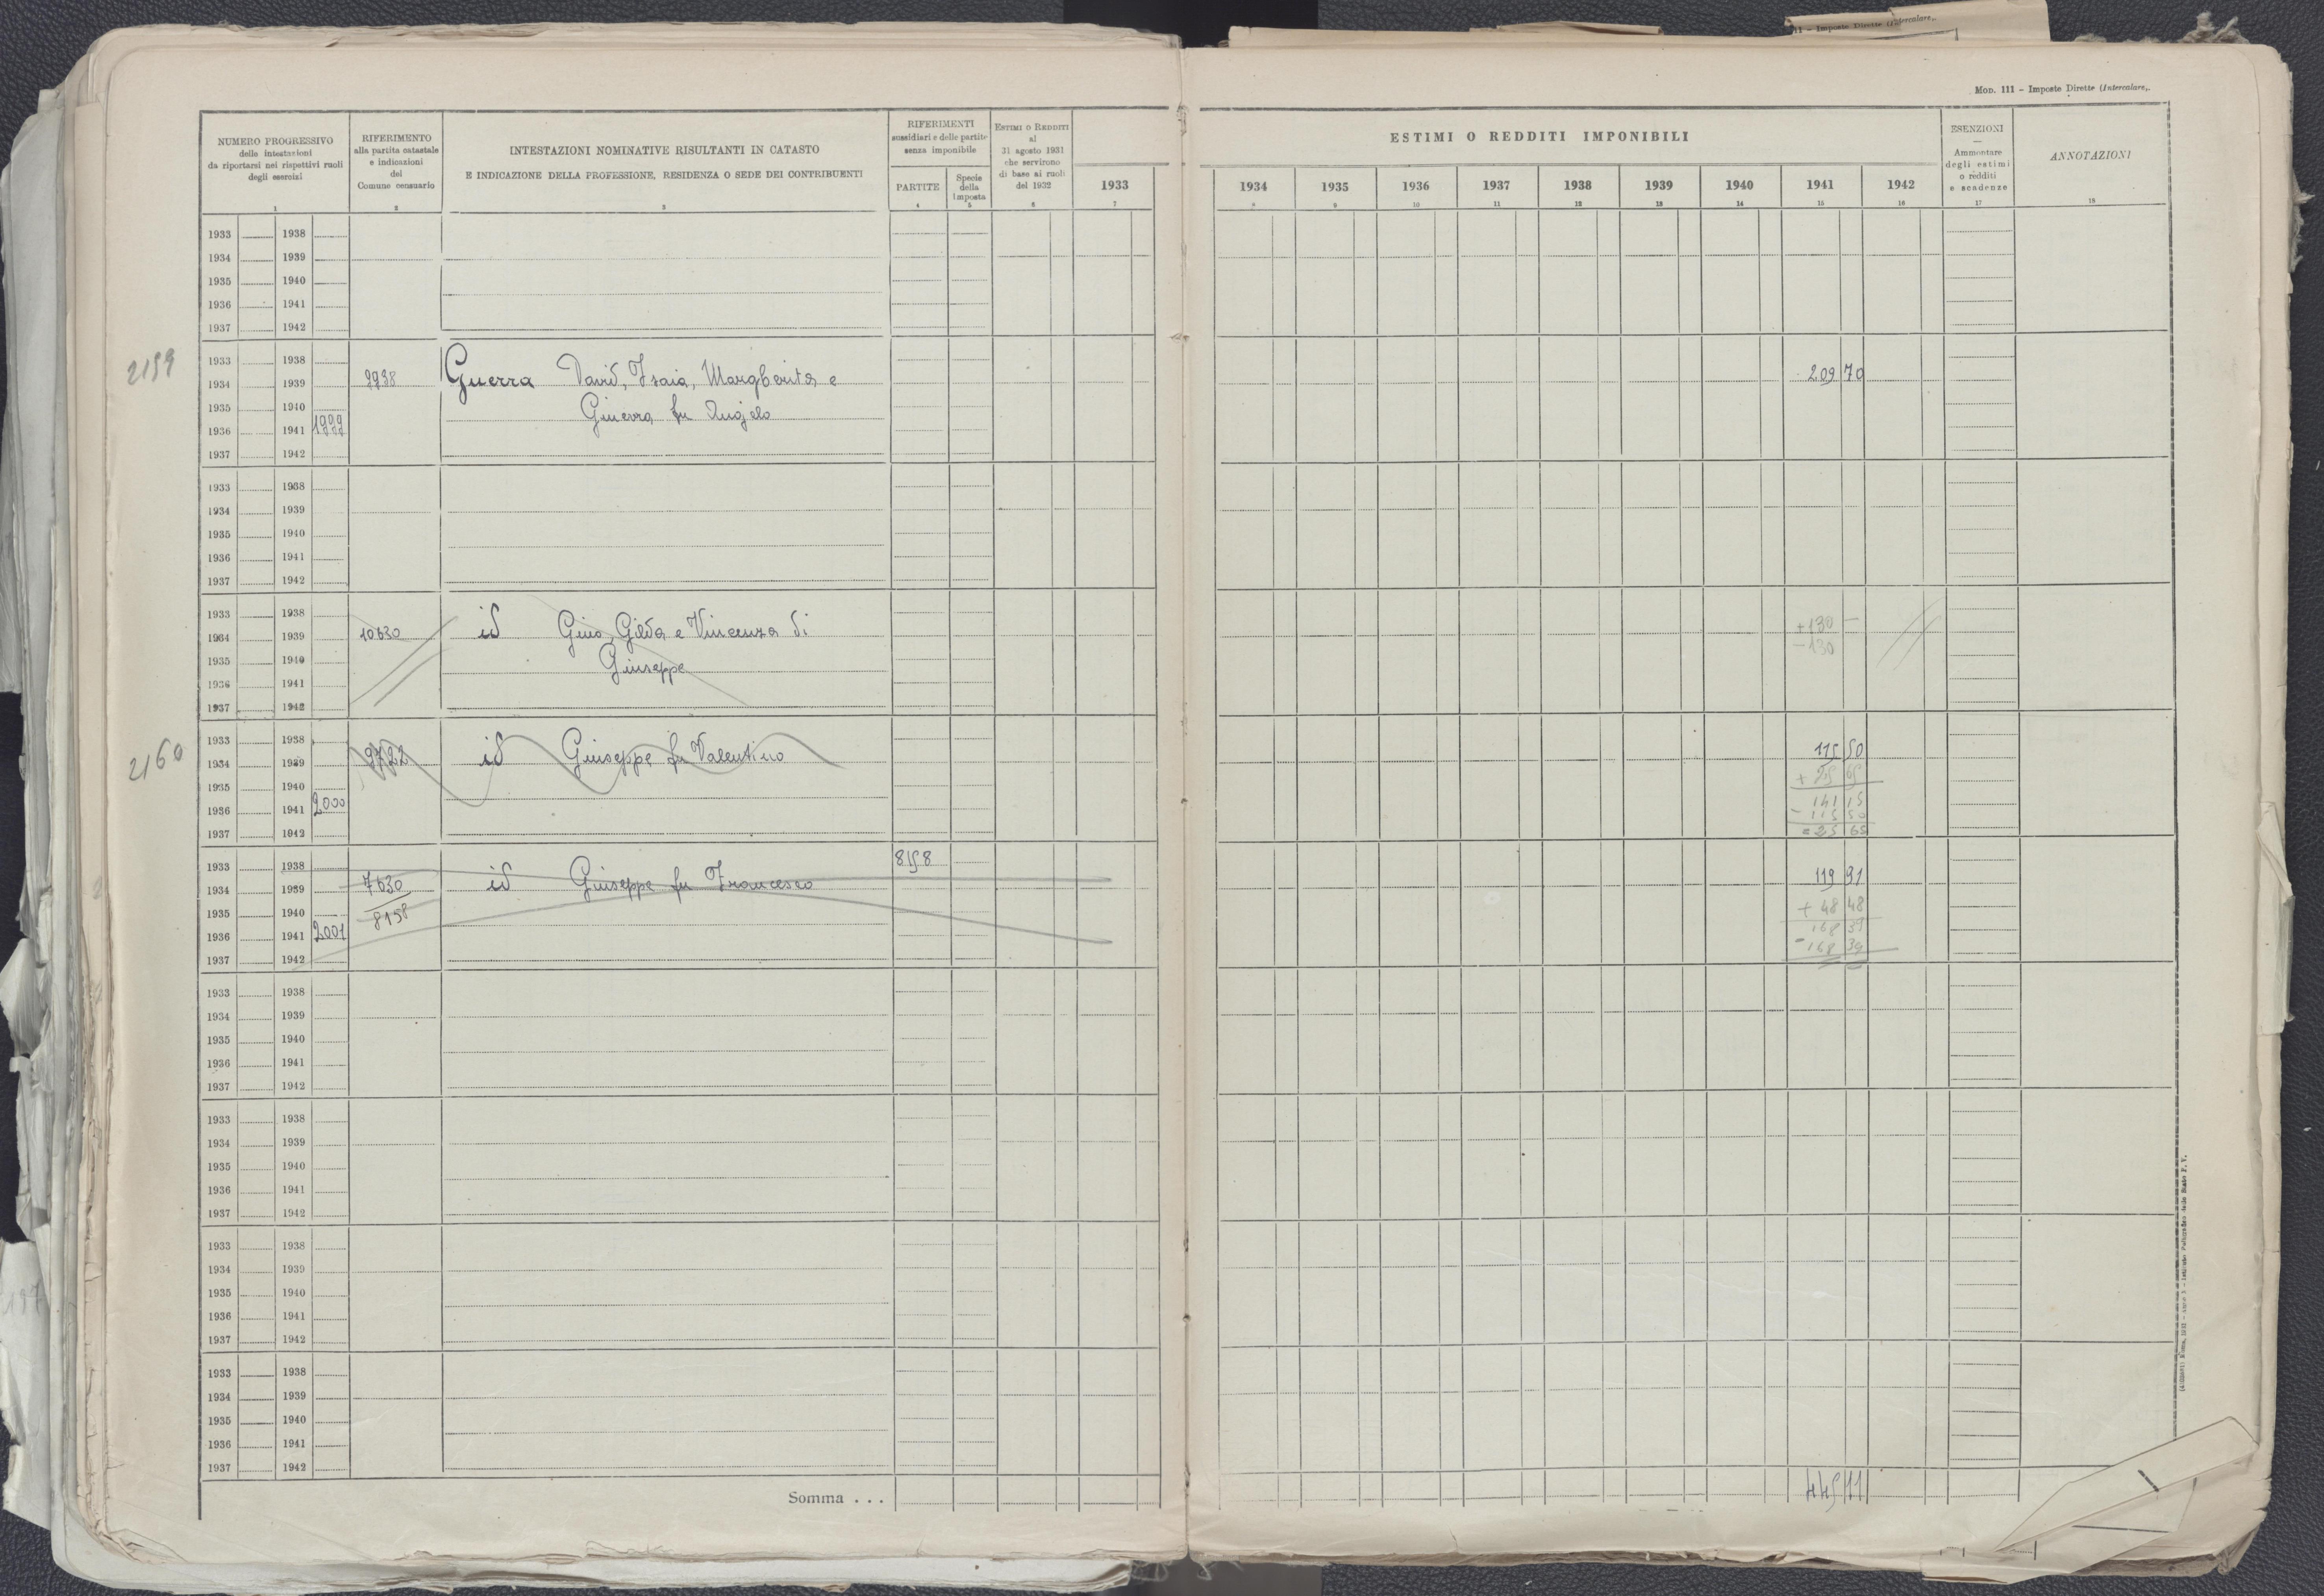 11 - Imposte Dirette (Intercalare,.
MOD. 111 - Imposte Dirette (Intercalare,.
NUMERO PROGRESSIVO
delle intestazioni
da riportarsi nei rispettivi ruoli
degli esercizi
1
RIFERIMENTO
alla partita catastale
e indicazioni
del
Comune censuario
2
INTESTAZIONI NOMINATIVE RISULTANTI IN CATASTO
E INDICAZIONE DELLA PROFESSIONE, RESIDENZA O SEDE DEI CONTRIBUENTI
3
RIFERIMENTI
sussidiari e delle partite
senza imponibile
PARTITE
4
Specie
della
imposta
5
ESTIMI O REDDITI
al
31 agosto 1931
che servirono
di base ai ruoli
del 1932
6
1933
7
ESTIMI O REDDITI IMPONIBILI
1934 1935 1936 1937 1938 1939 1940 1941 1942
8 9 10 11 12 13 14 15 16
ESENZIONI
Ammontare
degli estimi
o redditi
e scadenze
17
ANNOTAZIONI
18
1933 1938
1934 1939
1935 1940
1936 1941
1937 1942
2159
1933 1938
1934 1939 9938 Guerra David, Isaia, Margherita e 209 70
1935 1940 Ginevra fu Angelo
1936 1941 1999
1937 1942
1933 1938
1934 1939
1935 1940
1936 1941
1937 1942
1933 1938
1934 1939 10630 id Gino, Gilda e Vincenza di +130 -
1935 1940 Giuseppe -130
1936 1941
1937 1942
2160
1933 1938 115 50
1934 1939 9722 id Giuseppe fu Valentino + 25 65
1935 1940 141 15
1936 1941 2000 - 115 50
1937 1942 = 25 65
1933 1938 8158
1934 1939 7630 id Giuseppe fu Francesco 119 91
1935 1940 8158 + 48 48
1936 1941 2001 168 39
1937 1942 - 168 39
1933 1938
1934 1939
1935 1940
1936 1941
1937 1942
1933 1938
1934 1939
1935 1940
1936 1941
1937 1942
1933 1938
1934 1939
1935 1940
1936 1941
1937 1942
1933 1938
1934 1939
1935 1940
1936 1941
1937 1942
Somma . . . 445 11